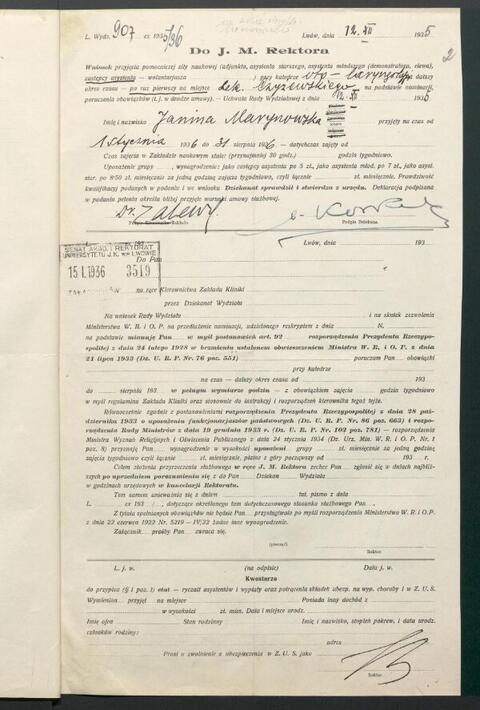 L. Wydz. 907 ex 1935/36 Lwów, dnia 12.XII 1935
2
Do J. M. Rektora
Wniosek przyjęcia pomocniczej siły naukowej (adjunkta, asystenta starszego, asystenta młodszego (demonstratora, elewa),
zastępcy asystenta — wolontarjusza ) przy katedrze oto-laryngologji dalszy
okres czasu — po raz pierwszy na miejsce lek. Czyżewskiego na podstawie nominacji,
poruczenia obowiązków (t. j. w drodze umowy). — Uchwała Rady Wydziałowej z dnia 12.XII 1935
Imię i nazwisko Janina Marynowska przyjęty na czas od
1 stycznia 1936 do 31 sierpnia 1936 — dotychczas zajęty od
Czas zajęcia w Zakładzie naukowym stale: (przynajmniej 30 godz.) godzin tygodniowo.
Uposażenie grupy , wynagrodzenie jako zastępcy asystenta po 5 zł., jako asystenta młod. po 7 zł., jako asyst.
star. po 8·50 zł. miesięcznie za jedną godzinę zajęcia tygodniowo, czyli łącznie zł. miesięcznie. Prawdziwość
kwalifikacyj podanych w podaniu i we wniosku Dziekanat sprawdził i stwierdza z urzędu. Deklarację podpisaną
w podaniu petenta określa bliżej przyjęte warunki umowy służbowej.
Dr. Zalewski
Podpis Kierownika Zakładu Podpis Dziekana
Lwów, dnia 193
SENAT AKAD. I REKTORAT
UNIWERSYTETU J. K. WE LWOWIE
15 I. 1936 3519
Do Pan
na ręce Kierownictwa Zakładu Kliniki
przez Dziekanat Wydziału
Na wniosek Rady Wydziału i na skutek zezwolenia
Ministerstwa W. R. i O. P. na przedłożenie nominacji, udzielonego reskryptem z dnia N.
na podstawie mianuję Pan w myśl postanowień art. 92 rozporządzenia Prezydenta Rzeczypospolitej
z dnia 24 lutego 1928 w brzmieniu ustalonem obwieszczeniem Ministra W. R. i O. P. z dnia
21 lipca 1933 (Dz. U. R. P. Nr. 76 poz. 551) poruczam Pan obowiązki
przy katedrze
na czas — dalszy okres czasu od 193
do sierpnia 193 w pełnym wymiarze godzin — z obowiązkiem zajęcia godzin tygodniowo
w myśl regulaminu Zakładu Kliniki oraz stosownie do instrukcji i rozporządzeń kierownika tegoż tejże.
Równocześnie zgodnie z postanowieniami rozporządzenia Prezydenta Rzeczypospolitej z dnia 28 października
1933 o uposażeniu funkcjonarjuszów państwowych (Dz. U. R. P. Nr. 86 poz. 663) i rozporządzenia
Rady Ministrów z dnia 19 grudnia 1933 r. (Dz. U. R. P. Nr. 102 poz. 781) — rozporządzenia
Ministra Wyznań Religijnych i Oświecenia Publicznego z dnia 24 stycznia 1934 (Dz. Urz. Min. W. R. i O. P. Nr. 1
poz. 8) przyznaję Pan wynagrodzenie w wysokości uposażeń grupy zł. miesięcznie za jedną godzinę
zajęcia tygodniowo czyli łącznie zł. miesięcznie, płatne z góry począwszy od 193 r.
Celem złożenia przyrzeczenia służbowego w ręce J. M. Rektora zechce Pan zgłosić się w dniach najbliższych
po uprzedniem porozumieniu się z do Pan Dziekan Wydziału
w godzinach urzędowych w kancelarji Rektoratu.
Tem samem unieważnia się z dniem tut. pismo z dnia
L. ex 193 / , dotyczące określenia tem dotychczasowego stosunku służbowego Pan
Z tytułu spełnianych obowiązków nie będzie Pan przysługiwało po myśli rozporządzenia Ministerstwa W. R. i O P.
z dnia 22 czerwca 1922 Nr. 5219 - IV/22 żadne inne wynagrodzenie.
Załącznik prośby Pan zwraca się.
(pieczęć)
Rektor
L. j. w. (na odpisie) Data j. w.
Kwestorze
do przypisu (§ 1 poz. 1) etat — ryczałt asystentów i wypłaty oraz potrącenia składek ubezp. na wyp. choroby i w Z. U. S.
Wymienion przyjęty na miejsce Posiada inny dochód z
w wysokości zł. mies. Data i miejsce urodz.
Imię ojca Stan rodzinny Imię i nazwisko, stopień pokrew, i data urodz.
członków rodziny:
adres
Prosi o zwolnienie z ubezpieczenia w Z. U. S. jako
Rektor